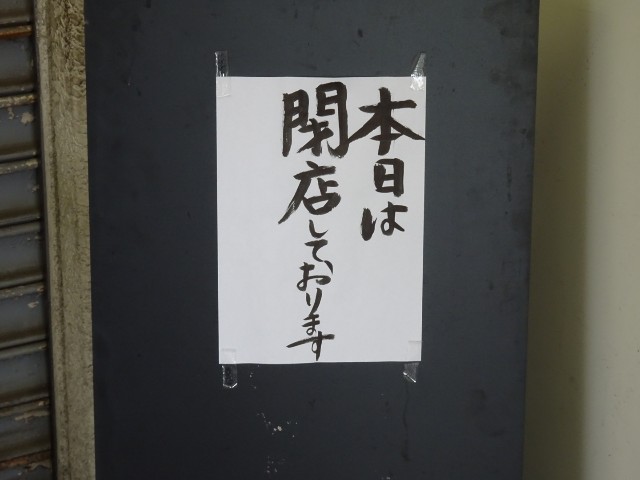 本日は
閉店しております